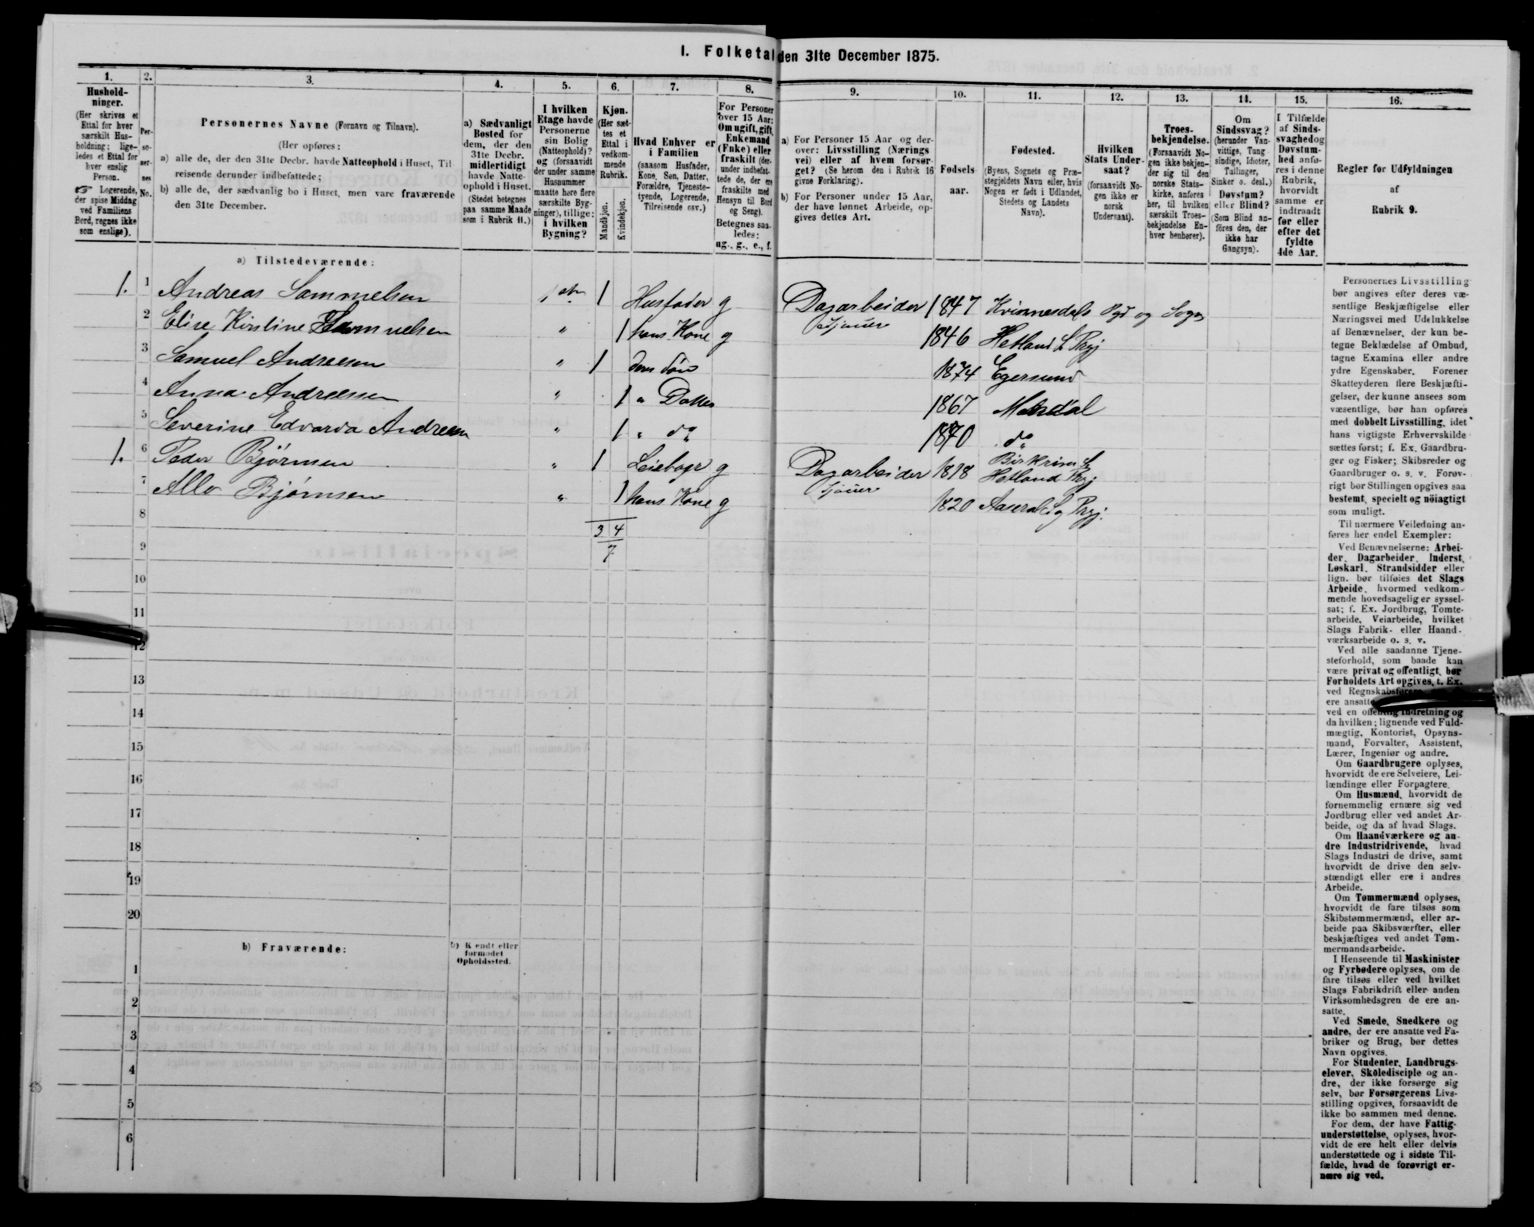 I. Folketal den 31te December 1875.
1.
Hushold-
ninger.
(Her skrives et
Ettal for hver
særskilt Hus-
holdning; lige-
ledes et Ettal for
hver enslig
Person.
☞ Logerende,
der spise Middag
ved Familiens
Bord, regnes ikke
som enslige).
2.
Per-
so-
ner-
nes
No.
3.
Personernes Navne (Fornavn og Tilnavn).
(Her opføres:
a) alle de, der den 31te Decbr. havde Natteophold i Huset, Til-
reisende derunder indbefattede;
b) alle de, der sædvanlig bo i Huset, men vare fraværende
den 31te December.
4.
a) Sædvanligt
Bosted for
dem, der den
31te Decbr.
midlertidigt
havde Natte-
ophold i Huset.
(Stedet betegnes
paa samme Maade
som i Rubrik 11.)
5.
I hvilken
Etage havde
Personerne
sin Bolig
(Natteophold)?
og (forsaavidt
der under samme
Husnummer
maatte høre flere
særskilte Byg-
ninger), tillige:
i hvilken
Bygning?
6.
Kjøn.
(Her sæt-
tes et
Ettal i
vedkom-
mende
Rubrik.
Mandkjøn.
Kvindekjøn.
7.
Hvad Enhver er
i Familien
(saasom Husfader,
Kone, Søn, Datter,
Forældre, Tjeneste-
tyende, Logerende,
Tilreisende osv.)
8.
For Personer
over 15 Aar:
Om ugift, gift,
Enkemand
(Enke) eller
fraskilt (der-
under indbefat-
tede de, der ere
fraskilte med
Hensyn til Bord
og Seng).
Betegnes saa-
ledes:
ug., g., e., f.
9.
a) For Personer 15 Aar og der-
over: Livsstilling (Nærings
vei) eller af hvem forsør-
get? (Se herom den i Rubrik 16
givne Forklaring).
b) For Personer under 15 Aar,
der have lønnet Arbeide, op-
gives dettes Art.
10.
Fødsels
aar.
11.
Fødested.
(Byens, Sognets og Præ-
stegjeldets Navn eller, hvis
Nogen er født i Udlandet,
Stedets og Landets
Navn).
12.
Hvilken
Stats Under-
saat?
(forsaavidt No-
gen ikke er
norsk
Undersaat).
13.
Troes-
bekjendelse.
(Forsaavidt No-
gen ikke bekjen-
der sig til den
norske Stats-
kirke, anføres
her, til hvilken
særskilt Troes-
bekjendelse En-
hver henhører).
14.
Om
Sindssvag?
(herunder Van-
vittige, Tung
sindige, Idioter,
Tullinger,
Sinker o. desl.)
Døvstum?
eller Blind?
(Som Blind an-
føres den, der
ikke har
Gangsyn).
15.
I Tilfælde
af Sinds-
svaghed og
Døvstum
hed anfø-
res i denne
Rubrik,
hvorvidt
samme er
indtraadt
før eller
efter det
fyldte
4de Aar.
16.
Regler for Udfyldningen
af
Rubrik 9.
a) Tilstedeværende:
1. 1 Andreas Sammelsen 1 etn 1 Husfader g Dagarbeider 1847 Kvinnesdals Pgd og Sogn
Sjouer
2 Elise Kirstine Samuelsen " 1 hans Kone g 1846 Hetland S. Prgj
3 Samuel Andreasen " 1 deres Søn 1874 Egersund
4 Anna Andreassen " 1 " Datter 1867 Mandal
5 Severine Edvarda Andreasen " 1 " do 1870 do
1. 6 Peder Bjørnsen " 1 Leieboer g Dagarbeider 1818 Birkrim S
Sjouer Hetland Prgj
7 Allo Bjørnsen " 1 hans Kone g 1820 Aaserals Sg Prgj.
8 3 4
9 7
10
11
12
13
14
15
16
17
18
19
20
b) Fraværende:
b) Kjendt eller
formodet
Opholdssted.
1
2
3
4
5
6
Personernes Livsstilling
bør angives efter deres væ-
sentlige Beskjæftigelse eller
Næringsvei med Udelukkelse
af Benævnelser, der kun be-
tegne Beklædelse af Ombud,
tagne Examina eller andre
ydre Egenskaber. Forener
Skatteyderen flere Beskjæfti-
gelser, der kunne ansees som
væsentlige, bør han opføres
med dobbelt Livsstilling, idet
hans vigtigste Erhvervskilde
sættes først; f. Ex. Gaardbru-
ger og Fisker; Skibsreder og
Gaardbruger o. s. v. Forøv-
rigt bør Stillingen opgives saa
bestemt, specielt og nøiagtigt
som muligt.
Til nærmere Veiledning an-
føres her endel Exempler:
Ved Benævnelserne: Arbei-
der, Dagarbeider, Inderst,
Løskarl, Strandsidder eller
lign. bør tilføies det Slags
Arbeide, hvormed vedkom-
mende hovedsagelig er syssel-
sat; f. Ex. Jordbrug, Tomte-
arbeide, Veiarbeide, hvilket
Slags Fabrik- eller Haand-
værksarbeide o. s. v.
Ved alle saadanne Tjene-
steforhold, som baade kan
være privat og offentligt, bør
Forholdets Art opgives, t. Ex.
ved Regnskabsførere
ere ansatte
ved en offentlig Indretning og
da hvilken; lignende ved Fuld-
mægtig, Kontorist, Opsyns-
mand, Forvalter, Assistent,
Lærer, Ingeniør og andre.
Om Gaardbrugere oplyses,
hvorvidt de ere Selveiere, Lei-
lændinge eller Forpagtere.
Om Husmænd, hvorvidt de
fornemmelig ernære sig ved
Jordbrug eller ved andet Ar-
beide, og da af hvad Slags.
Om Haandværkere og an-
dre Industridrivende, hvad
Slags Industri de drive, samt
hvorvidt de drive den selv-
stændigt eller ere i andres
Arbeide.
Om Tømmermænd oplyses,
hvorvidt de fare tilsøs som
Skibstømmermænd, eller ar-
beide paa Skibsværfter, eller
beskjæftiges ved andet Tøm-
mermandsarbeide.
I Henseende til Maskinister
og Fyrbødere oplyses, om de
fare tilsøs eller ved hvilket
Slags Fabrikdrift eller anden
Virksomhedsgren de ere an-
satte.
Ved Smede, Snedkere og
andre, der ere ansatte ved Fa-
briker og Brug, bør dettes
Navn opgives.
For Studenter, Landbrugs-
elever, Skoledisciple og an-
dre, der ikke forsørge sig
selv, bør Forsørgerens Livs-
stilling opgives, forsaavidt de
ikke bo sammen med denne.
For dem, der have Fattig-
understøttelse, oplyses, hvor-
vidt de ere helt eller delvis
understøttede og i sidste Til-
fælde, hvad de forøvrigt er-
nære sig ved.